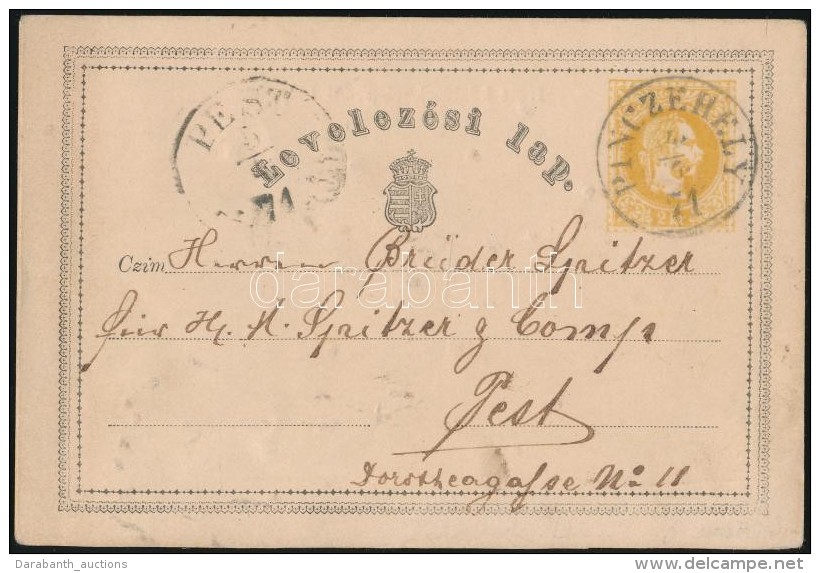 PEST
71
Levelezési lap.
PINCZEHELY
71
Czim Herren Brüder Spitzer
für H. H. Spitzer & Comp
Pest
Dorotheagasse No 11
darabanth
Darabanth_auctions
delcampe.net